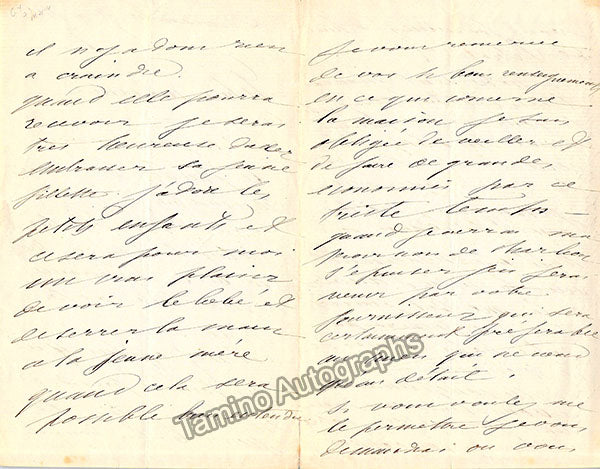 il n'y a donc rien
a craindre.
quand elle pourra
recevoir je serai
très heureuse d'aller
embrasser sa jeune
fillette. j'adore les
petits enfants et
ce sera pour moi
un vrai plaisir
de voir le bébé et
de serrer la main
a la jeune mère
quand cela sera
possible bien entendu
Je vous remercie
de vos si bons renseignements
en ce qui concerne
la maison je suis
obligée de veiller et
de faire de grandes
économies par ce
triste temps —
quand je verrai ma
provision de charbon
s'épuiser j'en ferai
venir par votre
fournisseur qui sera
certainement préférable
au mien qui ne vend
qu'au détail.
Si vous voulez me
le permettre je vous
demanderai ou vous
Tamino Autographs